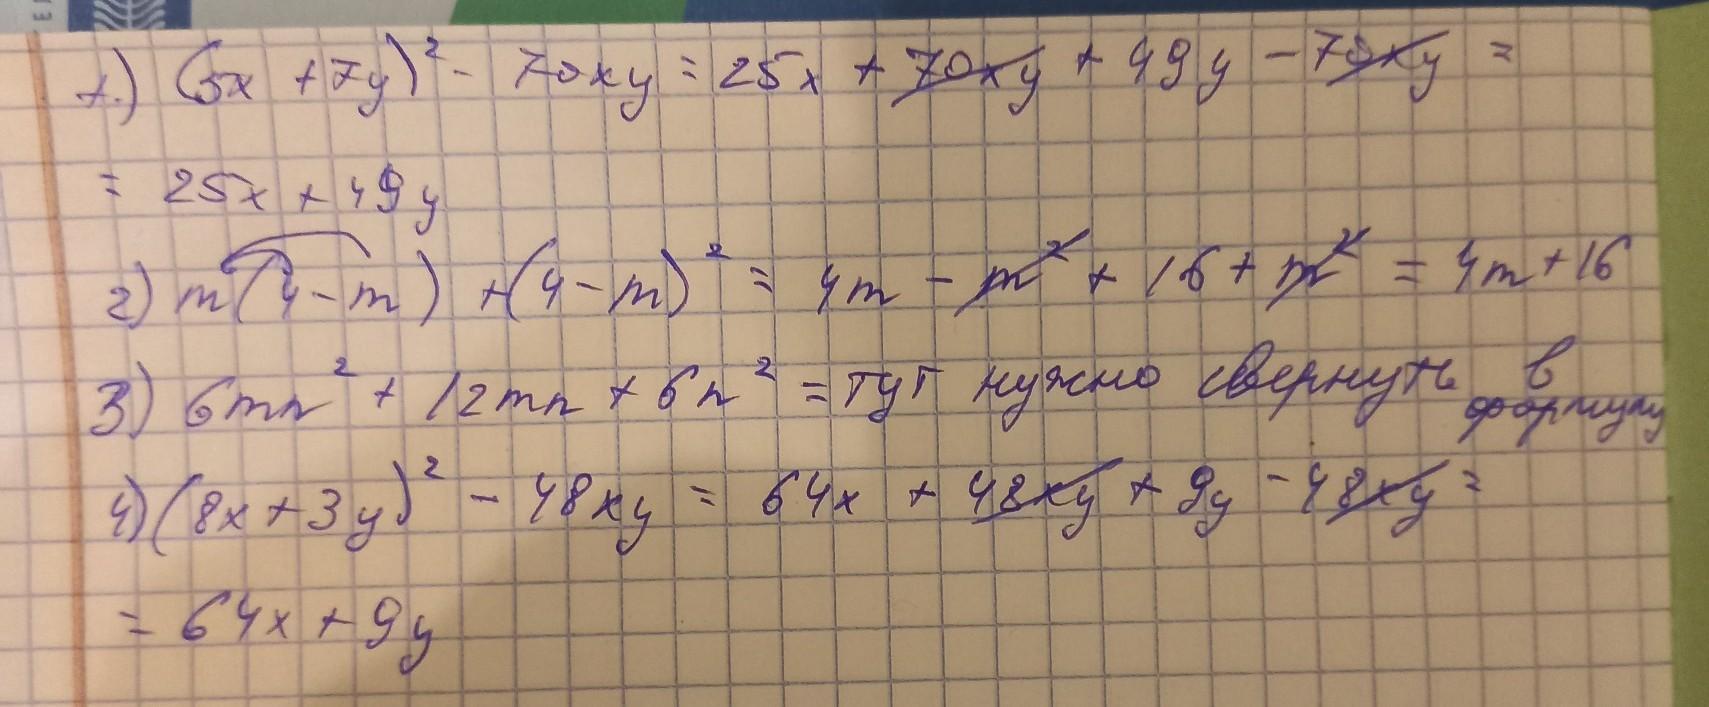 1.) (5x + 7y)² - 70xy = 25x + 70xy + 49y - 70xy =
= 25x + 49y
2) m(4 - m) + (4 - m)² = 4m - m² + 16 + m² = 4m + 16
3) 6mn² + 12mn + 6n² = тут нужно свернуть в формулу
4) (8x + 3y)² - 48xy = 64x + 48xy + 9y - 48xy =
= 64x + 9y